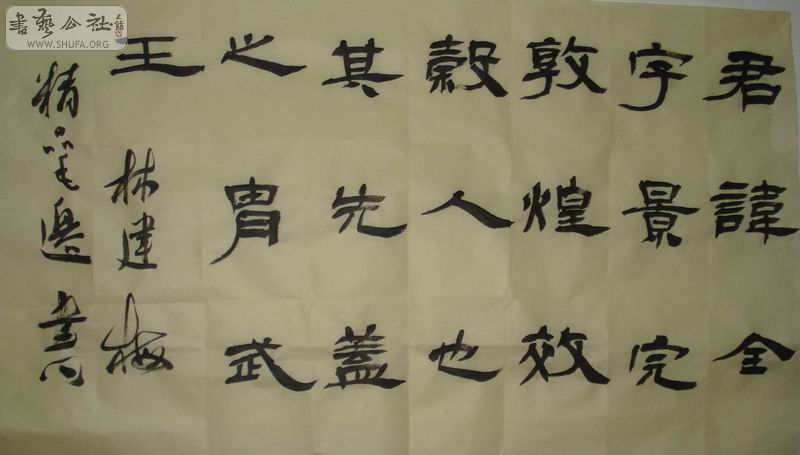 君諱全
字景完
敦煌效
穀人也
其先蓋
之胄武
王 林建梅
精笔邊書
書藝公社
WWW.SHUFA.ORG